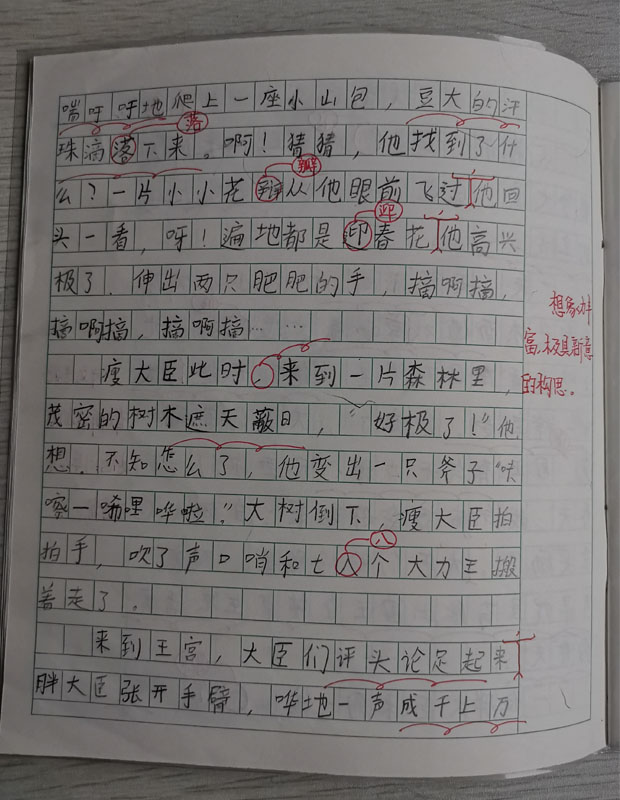 喘呼呼地爬上一座小山包，豆大的汗
落
珠滴落下来。啊！猜猜，他找到了什
瓣
么？一片小小花辩从他眼前飞过他回
迎
头一看，呀！遍地都是印春花他高兴
极了．伸出两只肥肥的手，搞啊搞，
搞啊搞，搞啊搞……
想象力丰
富，极具新意
的构思。
瘦大臣此时，来到一片森林里，
茂密的树木遮天蔽日，“好极了！”他
想．不知怎么了，他变出一只斧子“咔
嚓一唏里哗啦”大树倒下，瘦大臣拍
八
拍手，吹了声口哨和七入个大力王搬
着走了。
来到王宫，大臣们评头论足起来
胖大臣张开手臂，哗地一声成千上万